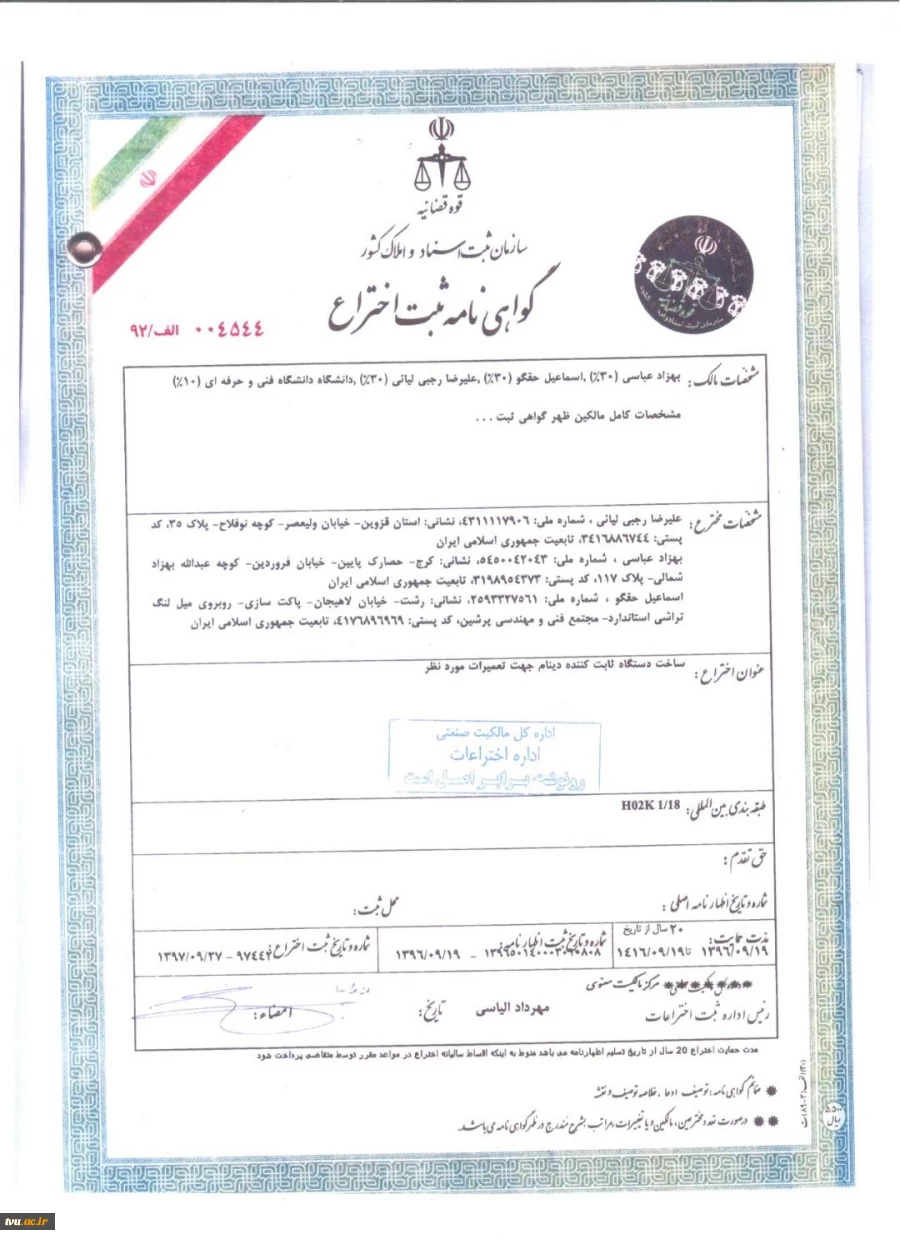 قوه قضائیه
سازمان ثبت اسناد و املاک کشور
گواهی نامه ثبت اختراع
۰۰٤٥٤٤ الف/۹۲
مشخصات مالک: بهزاد عباسی (۳۰٪) ,اسماعیل حقگو (۳۰٪) ,علیرضا رجبی لیائی (۳۰٪) ,دانشگاه دانشگاه فنی و حرفه ای (۱۰٪)
مشخصات کامل مالکین ظهر گواهی ثبت . . .
مشخصات مخترع: علیرضا رجبی لیائی ، شماره ملی: ۴۳۱۱۱۱۷۹۰۶، نشانی: استان قزوین- خیابان ولیعصر- کوچه نوفلاح- پلاک ۳۵، کد
پستی: ۳۴۱۶۸۸۶۷۴۴، تابعیت جمهوری اسلامی ایران
بهزاد عباسی ، شماره ملی: ۵۴۵۰۰۴۲۰۴۳، نشانی: کرج- حصارک پایین- خیابان فروردین- کوچه عبدالله بهزاد
شمالی- پلاک ۱۱۷، کد پستی: ۳۱۹۸۹۵۴۳۷۳، تابعیت جمهوری اسلامی ایران
اسماعیل حقگو ، شماره ملی: ۲۵۹۳۳۲۷۵۶۱، نشانی: رشت- خیابان لاهیجان- پاکت سازی- روبروی میل لنگ
تراشی استاندارد- مجتمع فنی و مهندسی پرشین، کد پستی: ۴۱۷۶۸۹۶۹۶۹، تابعیت جمهوری اسلامی ایران
عنوان اختراع: ساخت دستگاه ثابت کننده دینام جهت تعمیرات مورد نظر
اداره کل مالکیت صنعتی
اداره اختراعات
رونوشت برابر اصل است
طبقه بندی بین المللی: H02K 1/18
حق تقدم:
شماره و تاریخ اظهارنامه اصلی: محل ثبت:
مدت حمایت: ۲۰ سال از تاریخ
۱۳۹۶/۰۹/۱۹ تا ۱۴۱۶/۰۹/۱۹
شماره و تاریخ ثبت اظهارنامه:
۱۳۹۶۵۰۱۴۰۰۰۳۰۹۰۸۰۸ - ۱۳۹۶/۰۹/۱۹
شماره و تاریخ ثبت اختراع: ۹۷۴۴۲ - ۱۳۹۷/۰۹/۲۷
مرکز مالکیت معنوی
رئیس اداره ثبت اختراعات مهرداد الیاسی تاریخ: امضاء:
مدت حمایت اختراع 20 سال از تاریخ تسلیم اظهارنامه می باشد منوط به اینکه اقساط سالیانه اختراع در مواعد مقرر توسط متقاضی پرداخت شود
ضمائم گواهی نامه: توصیف، ادعا، خلاصه توصیف و نقشه
درصورت تعدد مخترعین، مالکین و یا تغییرات، مراتب بشرح مندرج در ظهر گواهی نامه می باشد.
۵.۵۰۰
ریال
tvu.ac.ir